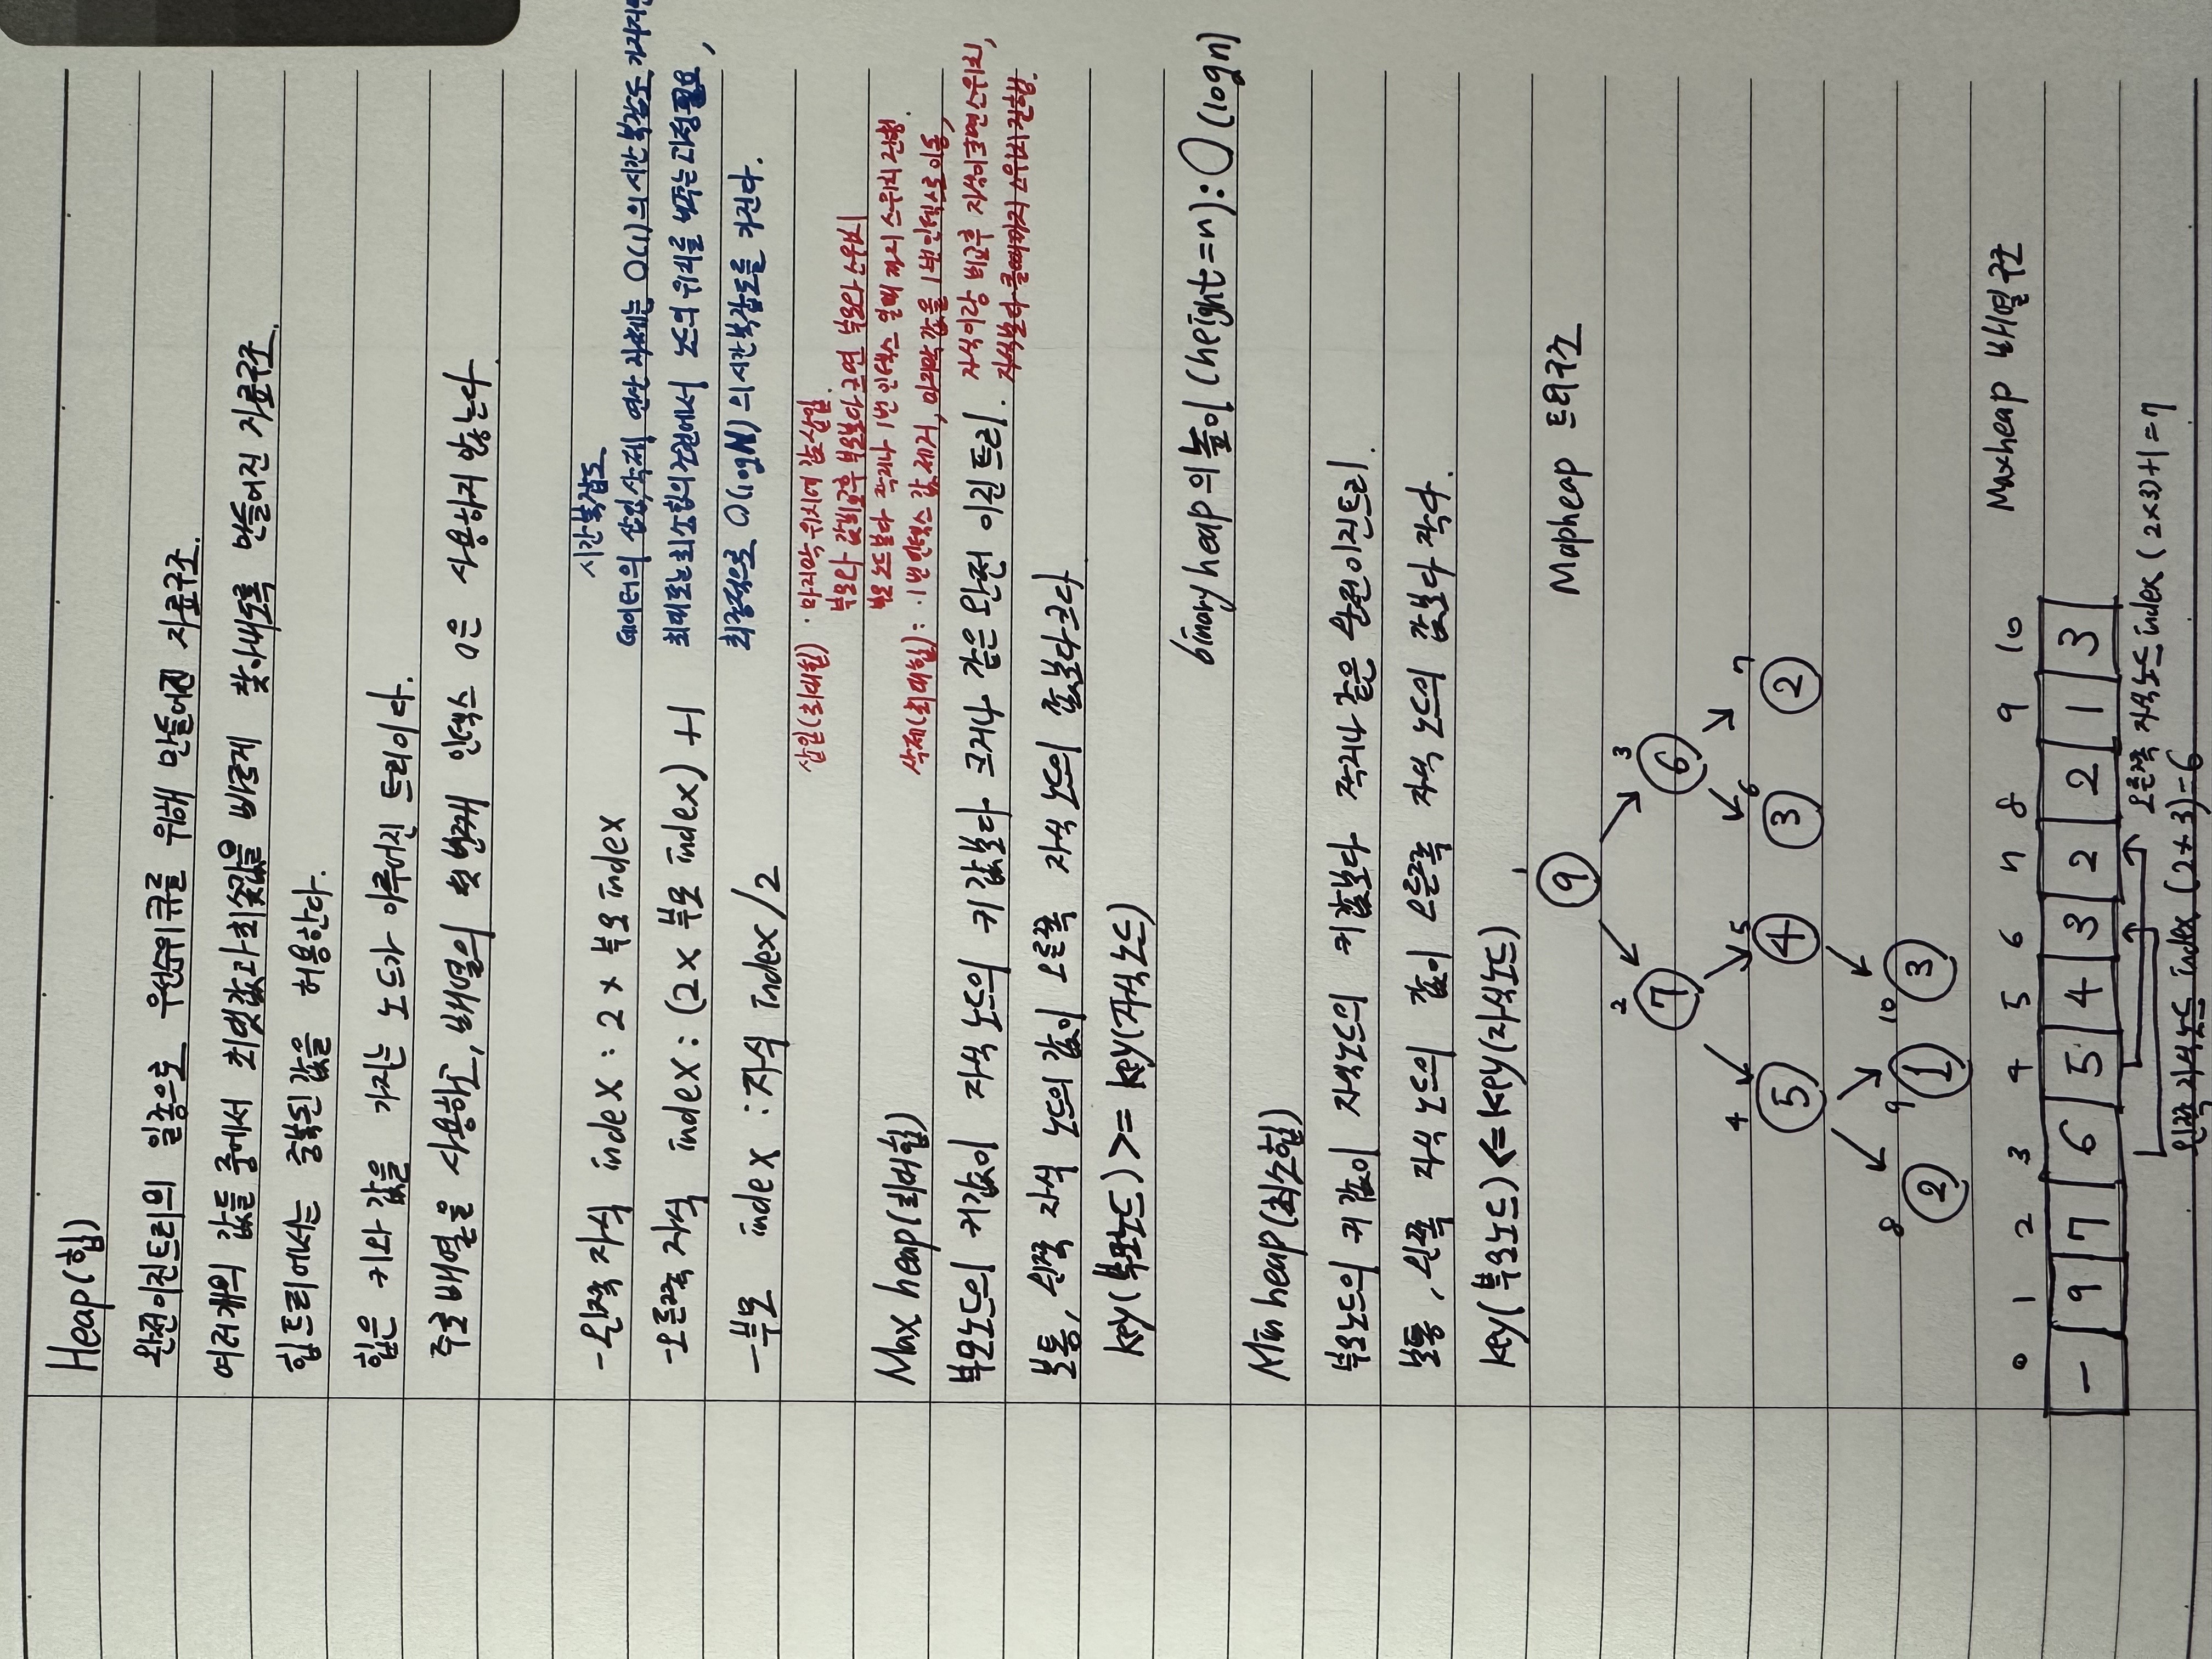 Heap(힙)
완전이진트리의 일종으로 우선순위큐를 위해 만들어진 자료구조.
여러개의 값들 중에서 최댓값과 최솟값을 빠르게 찾아내도록 만들어진 자료구조.
힙트리에서는 중복된 값을 허용한다.
힙은 키와 값을 가지는 노드가 이루어진 트리이다.
주로 배열을 사용하고, 배열의 첫번째 인덱스 0은 사용하지 않는다.
-왼쪽 자식 index : 2 × 부모 index
-오른쪽 자식 index : (2 × 부모 index) +1
-부모 index : 자식 index/2
시간복잡도
데이터의 삽입, 삭제 연산 자체는 O(1)의 시간 복잡도 가지지만
최대또는최소힙의조건에서 노드의 위치를 바꾸는 과정 필요,
최종적으로 O(logN)의 시간복잡도를 가진다.
삽입(최대힙) · 마지막 위치에 값 삽입.
부모와 값비교후 부모보다 크면 부모와 스위치
부모 노드보다 작거나 1번 인덱스 일때 까지 스위치 진행.
삭제(최대힙) : · 1번인덱스 값 제거, 마지막 값을 1번인덱스로 이동,
자식이랑 비교후 자식이크면 스위치,
자식보다 클때까지 스위치 진행.
Max heap(최대힙)
부모노드의 키값이 자식 노드의 키 값보다 크거나 같은 완전 이진 트리.
보통, 왼쪽 자식 노드의 값이 오른쪽 자식 노드의 값보다 크다
key(부모노드) >= key(자식노드)
binary heap의 높이 (height=n) : O(logn)
Min heap(최소힙)
부모노드의 키 값이 자식노드의 키값보다 작거나 같은 완전이진트리.
보통, 왼쪽 자식 노드의 값이 오른쪽 자식 노드의 값보다 작다.
key(부모노드) <= key(자식노드)
1
9
Mapheap 트리구조
2 3
7 6
4 5 6 7
5 4 3 2
8 9 10
2 1 3
Maxheap 배열구조
0 1 2 3 4 5 6 7 8 9 10
- 9 7 6 5 4 3 2 2 1 3
오른쪽 자식노드 index (2×3)+1=7
왼쪽 자식노드 index (2×3)=6